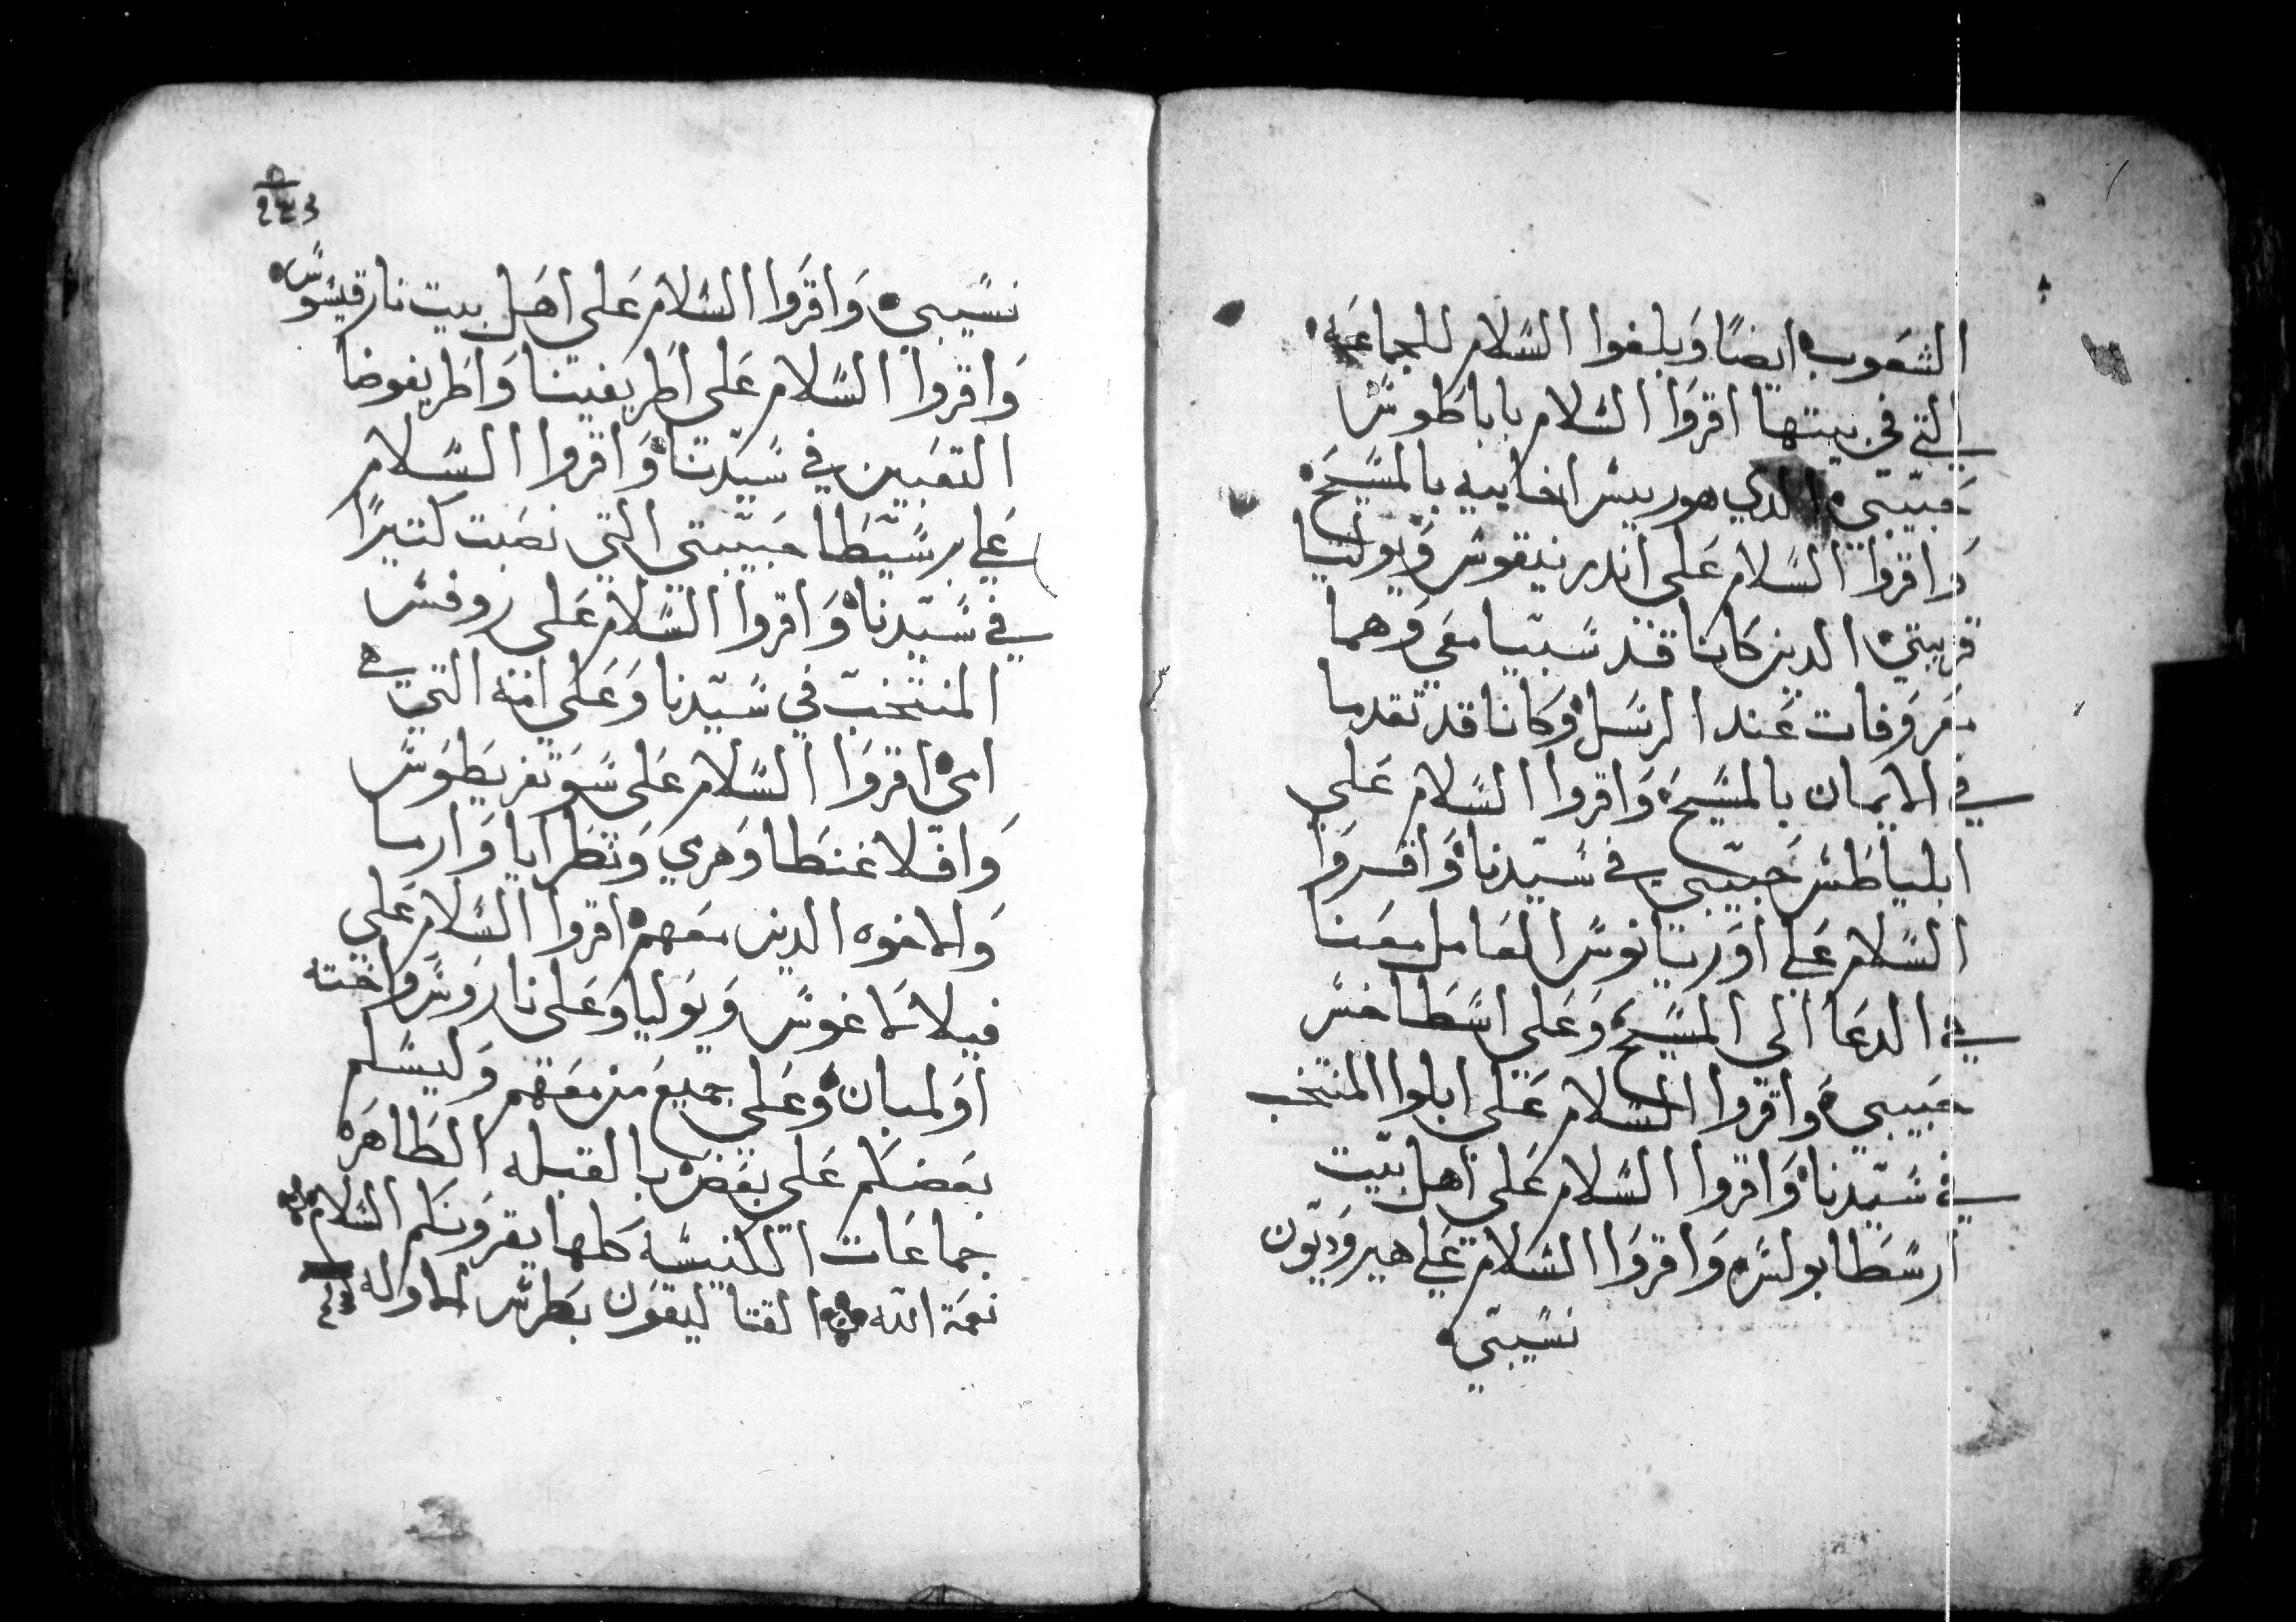 الشعوب ايضًا وبلغوا السلام للجماعه
التي في بيتها اقروا السلام باباطوس
حبيبي الدي هو ريس اخاييه بالمسيح
واقروا السلام علي اندرنيقوس ويوليا
قريبتي الدين كانا قد سبيا معي وهما
معروفات عند الرسل وكانا قد تقدما
في الايمان بالمسيح واقروا السلام علي
ابلياطس حبيبي في سيدنا واقروا
السلام علي اوربانوس العامل معنا
في الدعا الي المسيح وعلي اسطاخس
حبيبي واقروا السلام علي ابلوا المنتخب
في سيدنا واقروا السلام علي اهل بيت
ارسطابولس واقروا السلام علي هيروديون
نسيبي
نسيبي واقروا السلام علي اهل بيت نارقيسوس
واقروا السلام علي اطريفينا واطريفوضا
التعبين في سيدنا واقروا السلام
علي برسيطا حبيبتي التي نصبت كتيرًا
في سيدنا واقروا السلام علي روفس
المنتخب في سيدنا وعلي امه التي هي
امي اقروا السلام علي سونقريطوس
وافلاغنطا وهري وبطرابا وارما
والاخوه الدين معهم اقروا السلام علي
فيلالاغوس ويوليا وعلي ناروس واخته
اولمبان وعلي جميع من معهم وليسلم
بعضكم علي بعض بالقبله الطاهره
جماعات الكنيسه كلها يقرونكم السلام
نعمة الله القتاليقون بطرس الاوله